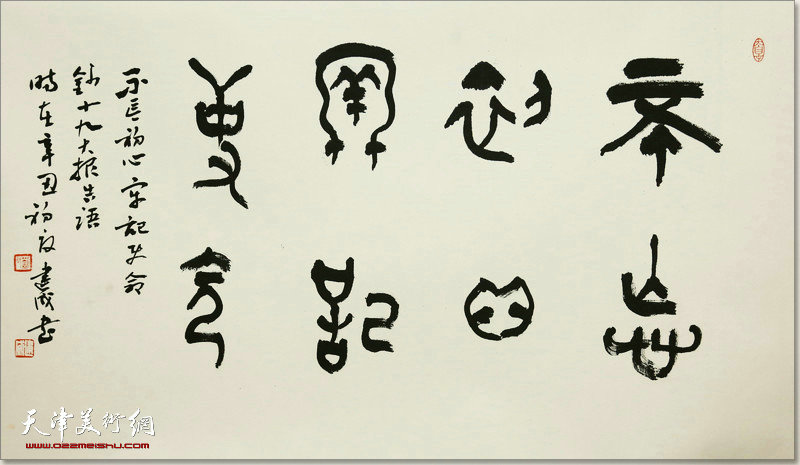 不忘
初心
牢记
使命
不忘初心牢記使命
錄十九大报告语
時在辛丑初夏建成书
天津美術網
www.022meishu.com